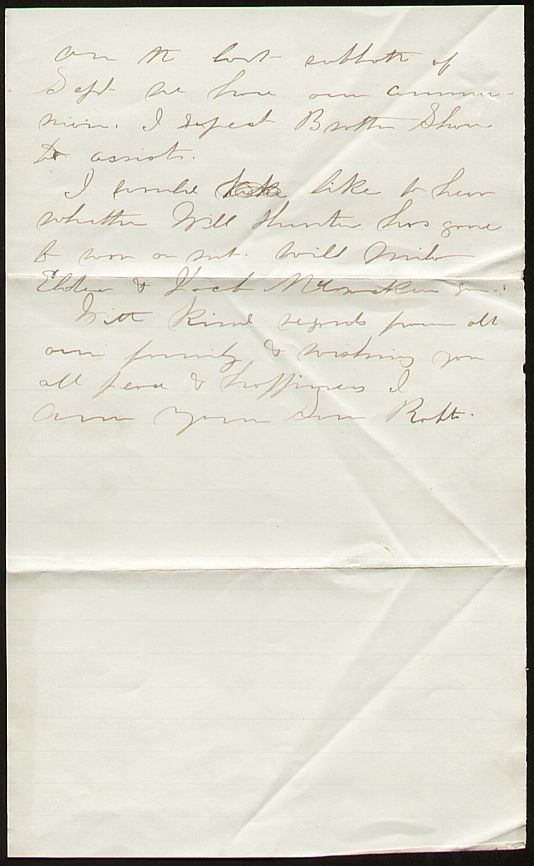 on the last sabbath of
Sept we have our commu-
nion. I expect Brother Shaw
to assist.
I would like to hear
whether Will Hunter has gone
to war or not. Will Milt
& Jack
With kind regards from all
our family & wishing you
all peace & happiness I
am your son Robt.